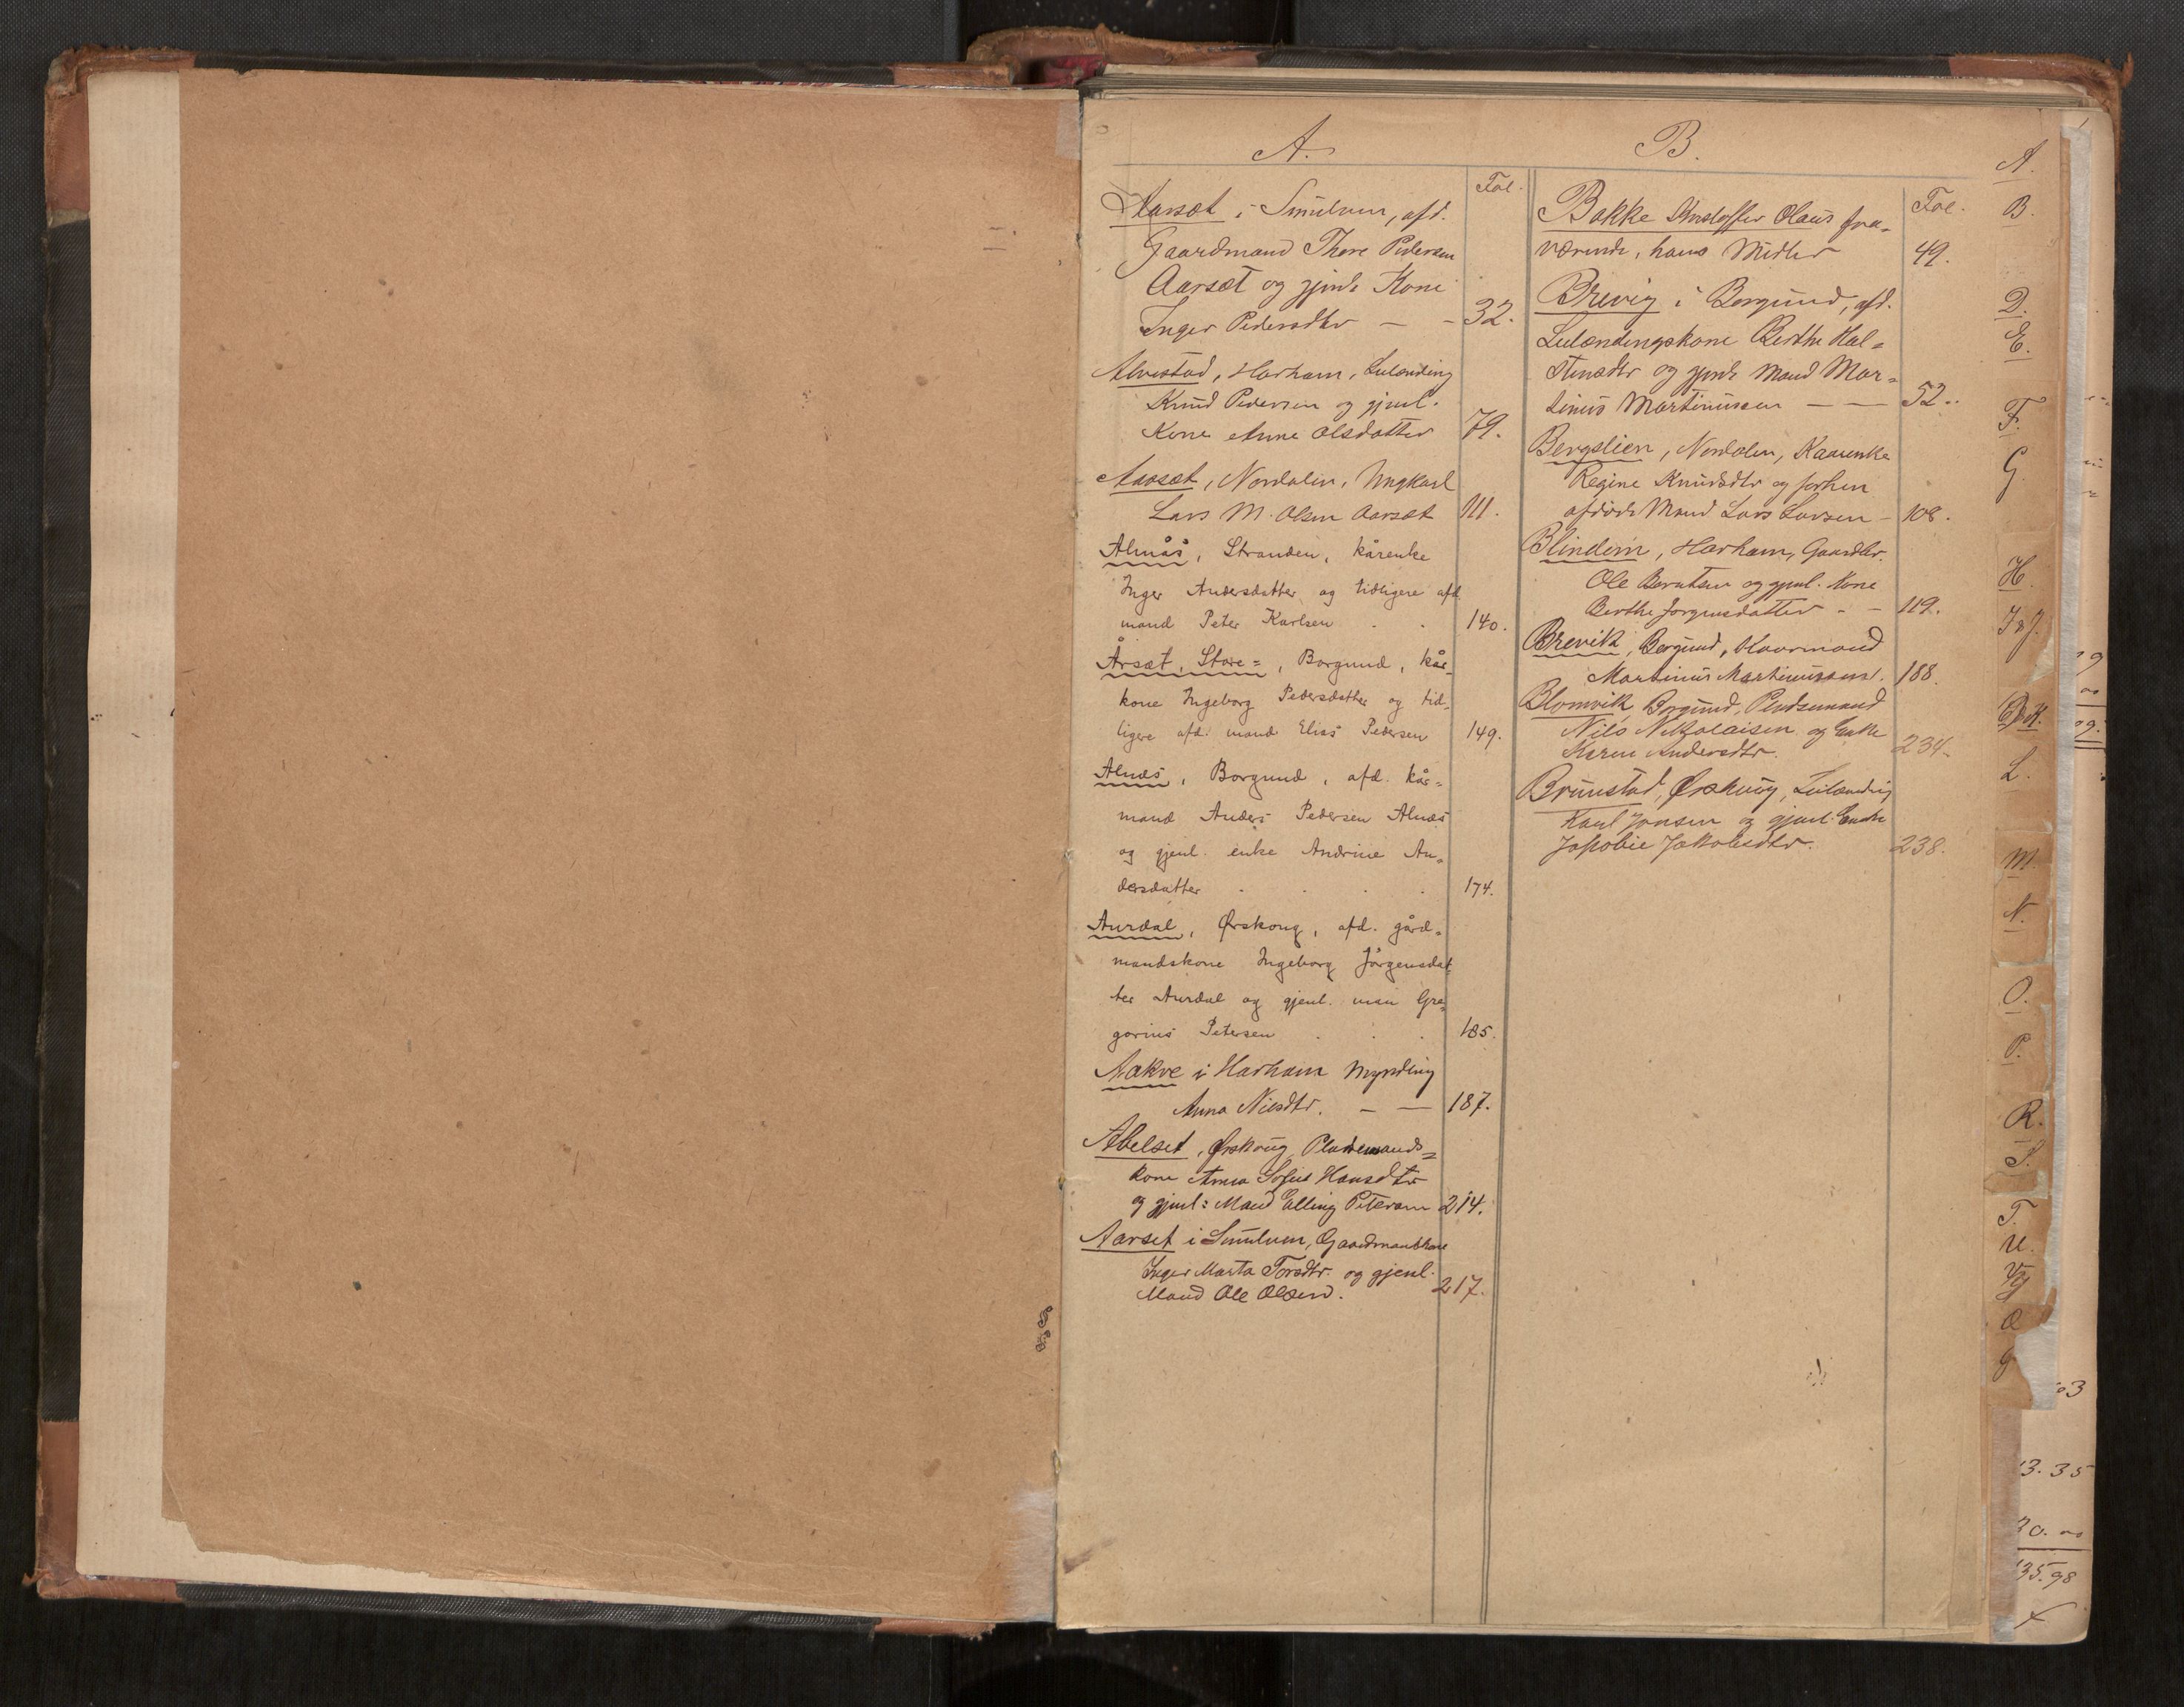 A.
Fol.
Aarsæt i Sunelven, afd.
Gaardmand Thore Pedersen
Aarsæt og gjenl. Kone
Inger Pedersdtr — — 32.
Alvestad, Harham, Leilænding
Knud Pedersen og gjenl.
Kone Anne Olsdatter 79.
Aarsæt, Nordalen, Ungkarl
Lars M. Olsen Aarsæt 111.
Almås, Stranden, kårenke
Inger Andersdatter og tidligere afd.
mand Peter Karlsen . . 140.
Årsæt, Store=, Borgund, kår=
kone Ingeborg Pedersdatter og tid=
ligere afd. mand Elias Pedersen 149.
Alnæs, Borgund, afd. kår=
mand Anders Pedersen Alnæs
og gjenl. enke Andrine An=
dersdatter . . . . 174.
Aurdal, Ørskoug, afd. gård=
mandskone Ingeborg Jörgensdat
ter Aurdal og gjenl. man Gre=
gorius Petersen . . . 185.
Aakve i Harham Myndling
Anna Nilsdtr. — — 187.
Abelset, Ørskoug, Pladsemands=
kone Anna Sofie Hansdtr
og gjenl: Mand Elling Petersen 214.
Aarset i Sunelven, Gaardmandskone
Inger Marta Torsdtr. og gjenl.
Mand Ole Olsen. 217.
B.
Fol.
Bakke Kristoffer Olaus fra=
værende, hans Midler 49.
Brevig i Borgund, afd.
Leilændingskone Berthe Hal=
stensdtr og gjenl. Mand Mar=
tinus Martinussen — — 52.
Bergslien, Nordalen, Kaarenke
Regine Knudsdtr og forhen
afdøde Mand Lars Larsen — 108.
Blindem, Harham, Gaardbr.
Ole Berntsen og gjenl. Kone
Berthe Jørgensdatter - - 119.
Brevik, Borgund, Kaarmand
Martinus Martinussen. 188.
Blomvik, Borgund, Pladsemand
Nils Nikolaisen og Enke
Karen Andersdtr. 234.
Brunstad, Ørskoug, Leilænding
Karl Jonsen og gjenl. Enke
Jakobie Jakobsdtr. 238.
A.
B.
D.
E.
F.
G.
H.
I & J.
K.
L.
M.
N.
O.
P.
R.
S.
T.
U.
Æ
Ø
03
13.35
20.
135.98